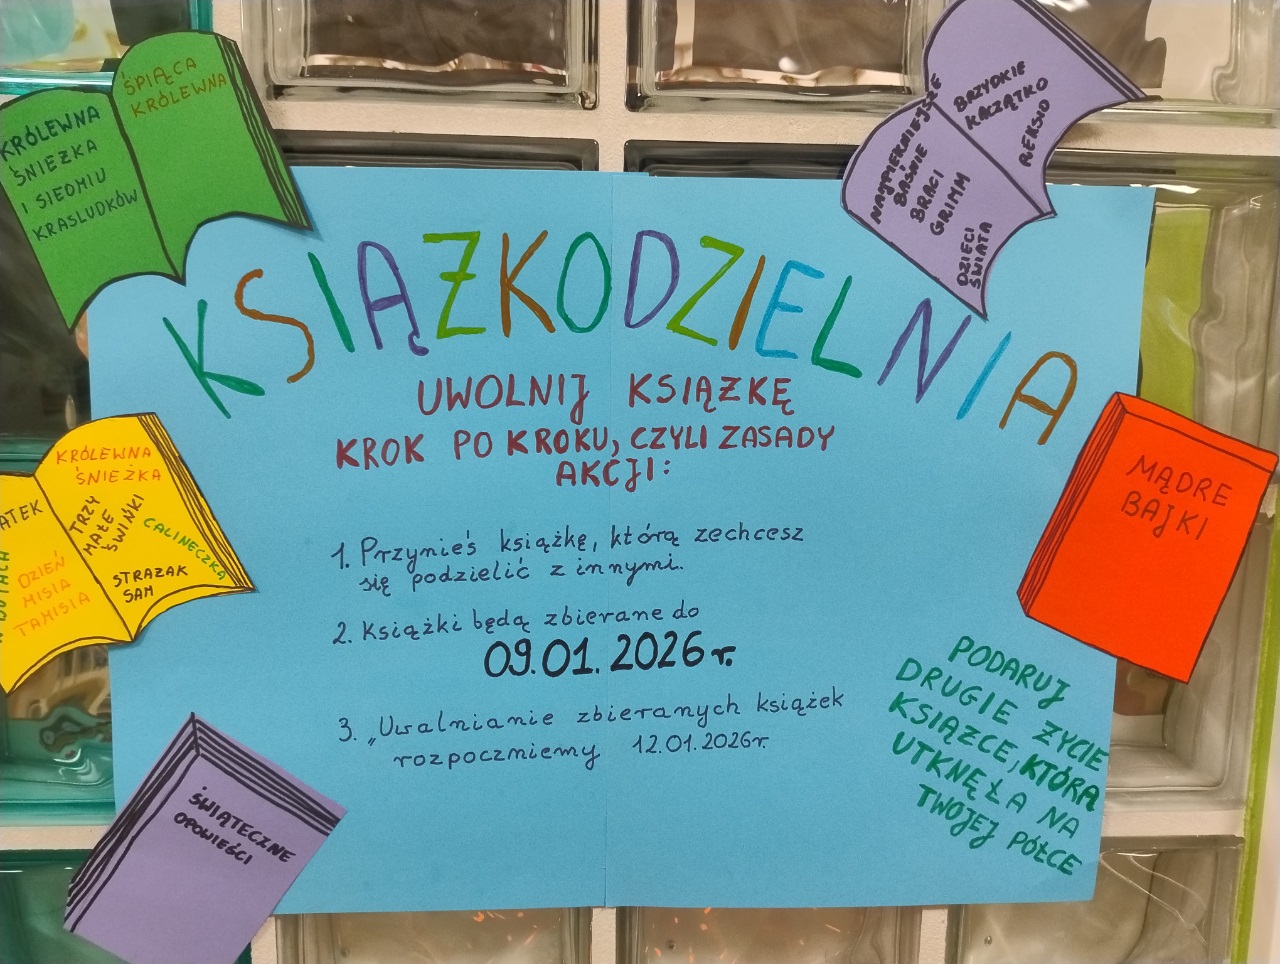 KRÓLEWNA
ŚNIEŻKA
I SIEDMIU
KRASLUDKÓW
ŚPIĄCA
KRÓLEWNA
NAJPIĘKNIEJSZE
BAŚNIE
BRACI
GRIMM
DZIECI
ŚWIATA
BRZYDKIE
KACZĄTKO
REKSIO
KSIĄŻKODZIELNIA
UWOLNIJ KSIĄŻKĘ
KROK PO KROKU, CZYLI ZASADY
AKCJI:
1. Przynieś książkę, którą zechcesz
się podzielić z innymi.
2. Książki będą zbierane do
09.01.2026 r.
3. „Uwalnianie zbieranych książek
rozpoczniemy 12.01.2026r.
ATEK
DZIEŃ
MISIA
TAMISIA
KRÓLEWNA
ŚNIEŻKA
TRZY
MAŁE
ŚWINKI
CALINECZKA
STRAŻAK
SAM
MĄDRE
BAJKI
ŚWIĄTECZNE
OPOWIEŚCI
PODARUJ
DRUGIE ŻYCIE
KSIĄŻCE, KTÓRA
UTKNĘŁA NA
TWOJEJ PÓŁCE